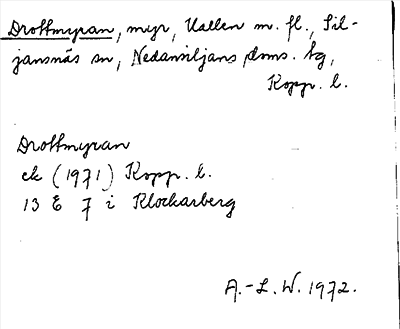 Drottmyran, myr, Uallen m. fl., Sil-
jansnäs sn, Nedansiljans doms. tg,
Kopp. l.
Drottmyran
ek (1971) Kopp. l.
13 E 7 i Klockarberg
A.-L. W. 1972.